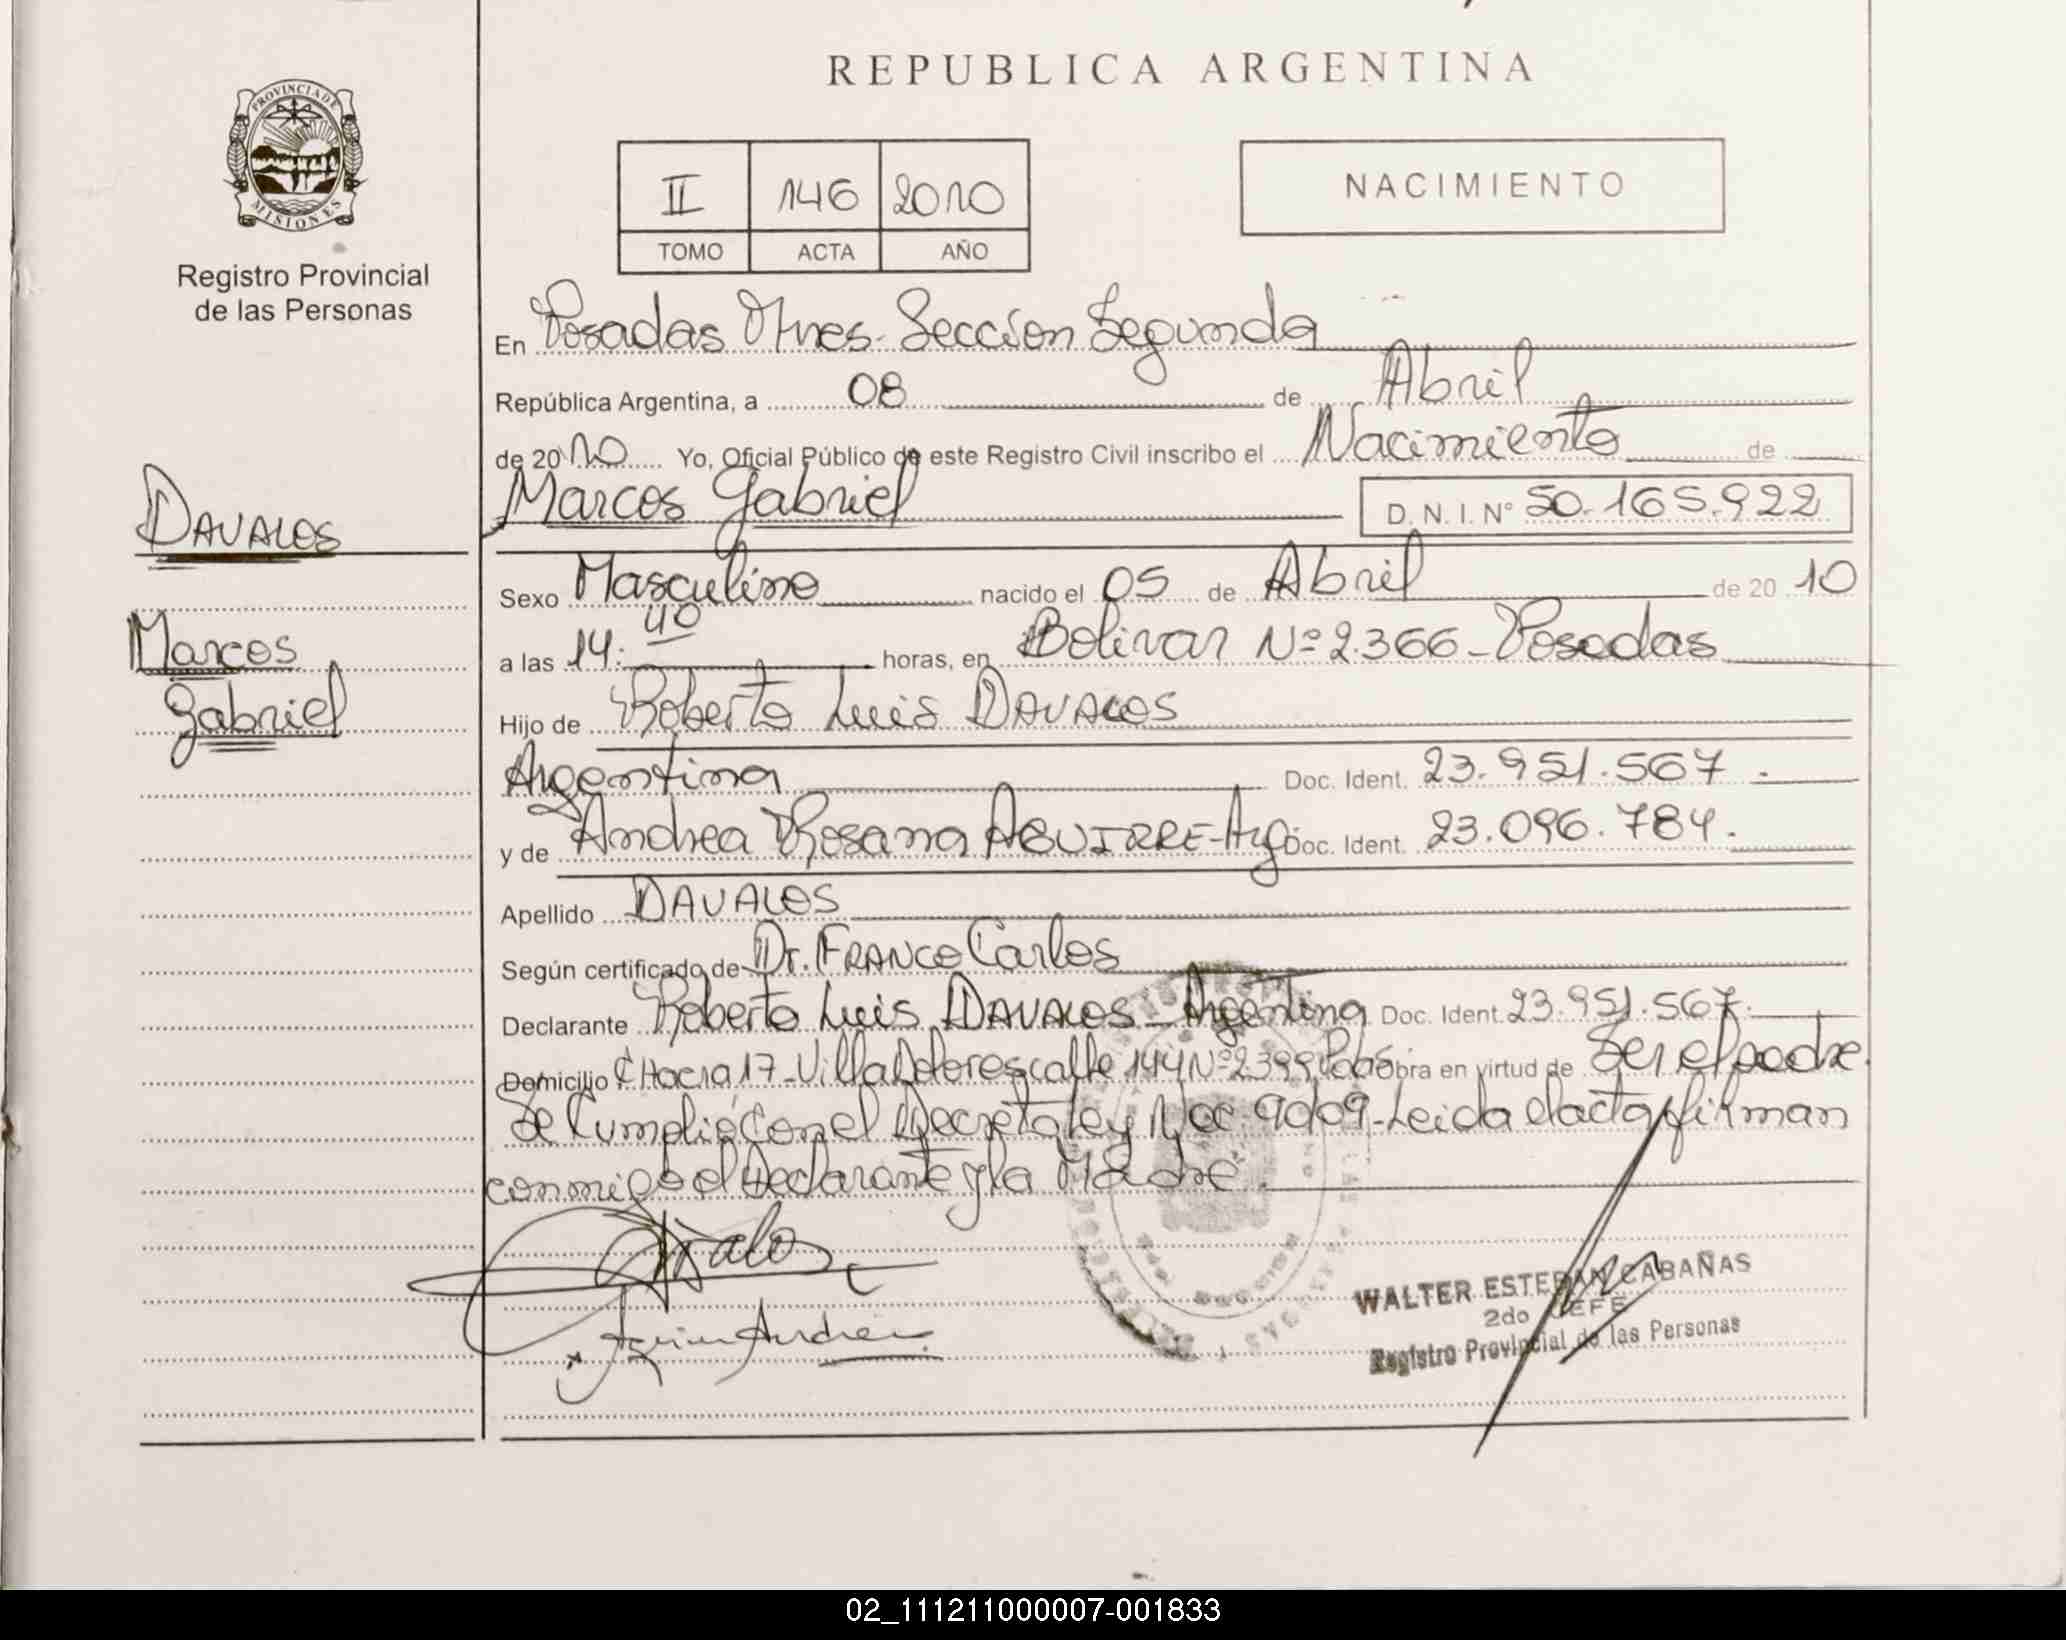 REPUBLICA ARGENTINA
PROVINCIA DE MISIONES
Registro Provincial
de las Personas
II 146 2010
TOMO ACTA AÑO
NACIMIENTO
En Posadas Mnes. Seccion Segunda
República Argentina, a 08 de Abril
de 2010 Yo, Oficial Público de este Registro Civil inscribo el Nacimiento de
Marcos Gabriel D.N.I. Nº 50.165.922
DAVALOS
Marcos
Gabriel
Sexo Masculino nacido el 05 de Abril de 2010
a las 14:40 horas, en Bolivar Nº 2.366 - Posadas
Hijo de Roberto Luis DAVALOS
Argentina Doc. Ident. 23.951.567.
y de Andrea Rosana AGUIRRE - Arg. Doc. Ident. 23.096.784.
Apellido DAVALOS
Según certificado de Dr. FRANCO Carlos
Declarante Roberto Luis DAVALOS - Argentina Doc. Ident. 23.951.567.
Domicilio CHacra 17 - Villa Dolores calle 144 Nº 2399 Pdas Obra en virtud de Ser el padre.
Se Cumplió Con el Decreto Ley Nac. 9009 - Leida el acta firman
conmigo el Declarante y la Madre.
WALTER ESTEBAN CABAÑAS
2do JEFE
Registro Provincial de las Personas
02_111211000007-001833